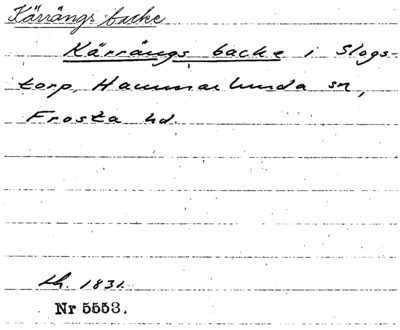 Kärrängs backe
Kärrängs backe i Slogs-
torp, Hammarlunda sn,
Frosta hd.
Lh. 1831.
Nr 5553.